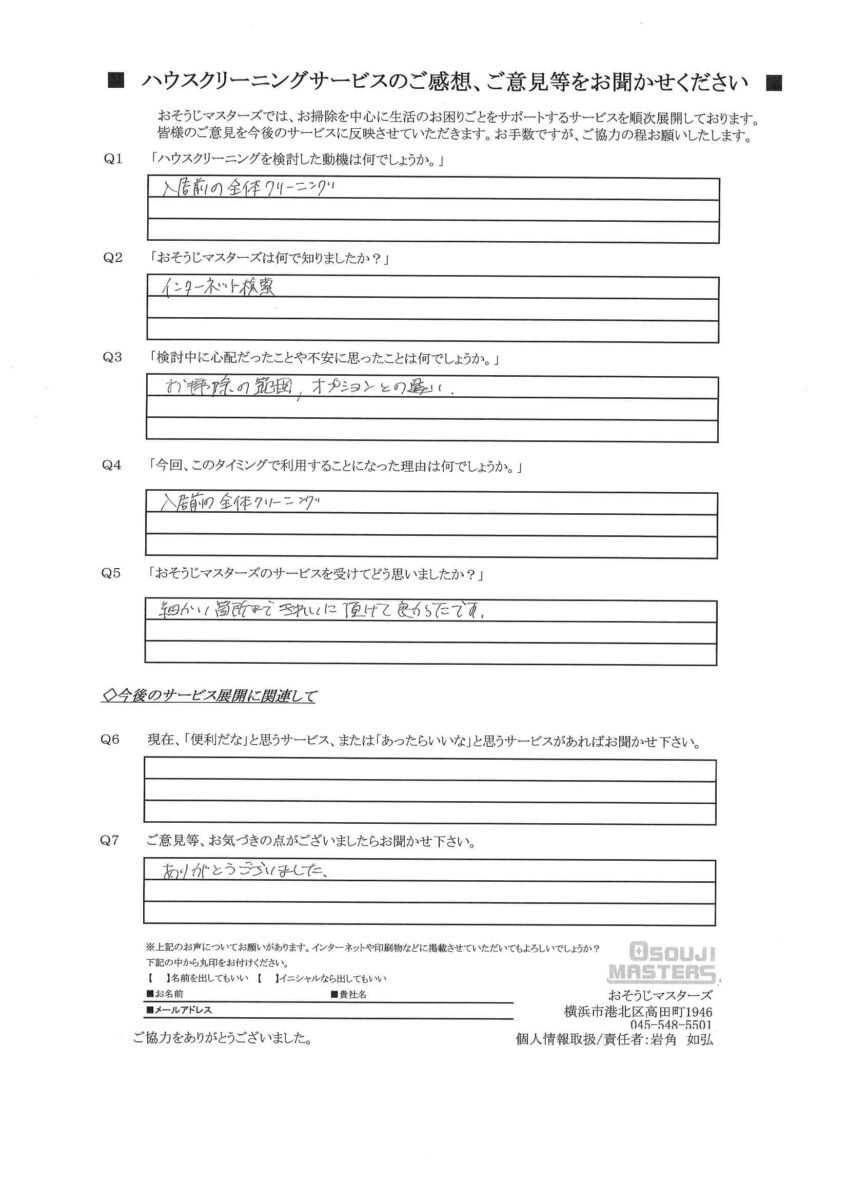 ■ ハウスクリーニングサービスのご感想、ご意見等をお聞かせください ■
おそうじマスターズでは、お掃除を中心に生活のお困りごとをサポートするサービスを順次展開しております。
皆様のご意見を今後のサービスに反映させていただきます。お手数ですが、ご協力の程お願いしたします。
Q1 「ハウスクリーニングを検討した動機は何でしょうか。」
入居前の全体クリーニング
Q2 「おそうじマスターズは何で知りましたか？」
インターネット検索
Q3 「検討中に心配だったことや不安に思ったことは何でしょうか。」
お掃除の範囲, オプションとの違い.
Q4 「今回、このタイミングで利用することになった理由は何でしょうか。」
入居前の全体クリーニング
Q5 「おそうじマスターズのサービスを受けてどう思いましたか？」
細かい箇所まできれいに頂けて良かったです.
◇今後のサービス展開に関連して
Q6 現在、「便利だな」と思うサービス、または「あったらいいな」と思うサービスがあればお聞かせ下さい。
Q7 ご意見等、お気づきの点がございましたらお聞かせ下さい。
ありがとうございました、
※上記のお声についてお願いがあります。インターネットや印刷物などに掲載させていただいてもよろしいでしょうか？
下記の中から丸印をお付けください。
【 】名前を出してもいい 【 】イニシャルなら出してもいい
■お名前 ■貴社名
■メールアドレス
ご協力をありがとうございました。
OSOUJI
MASTERS
おそうじマスターズ
横浜市港北区高田町1946
045-548-5501
個人情報取扱/責任者：岩角 如弘